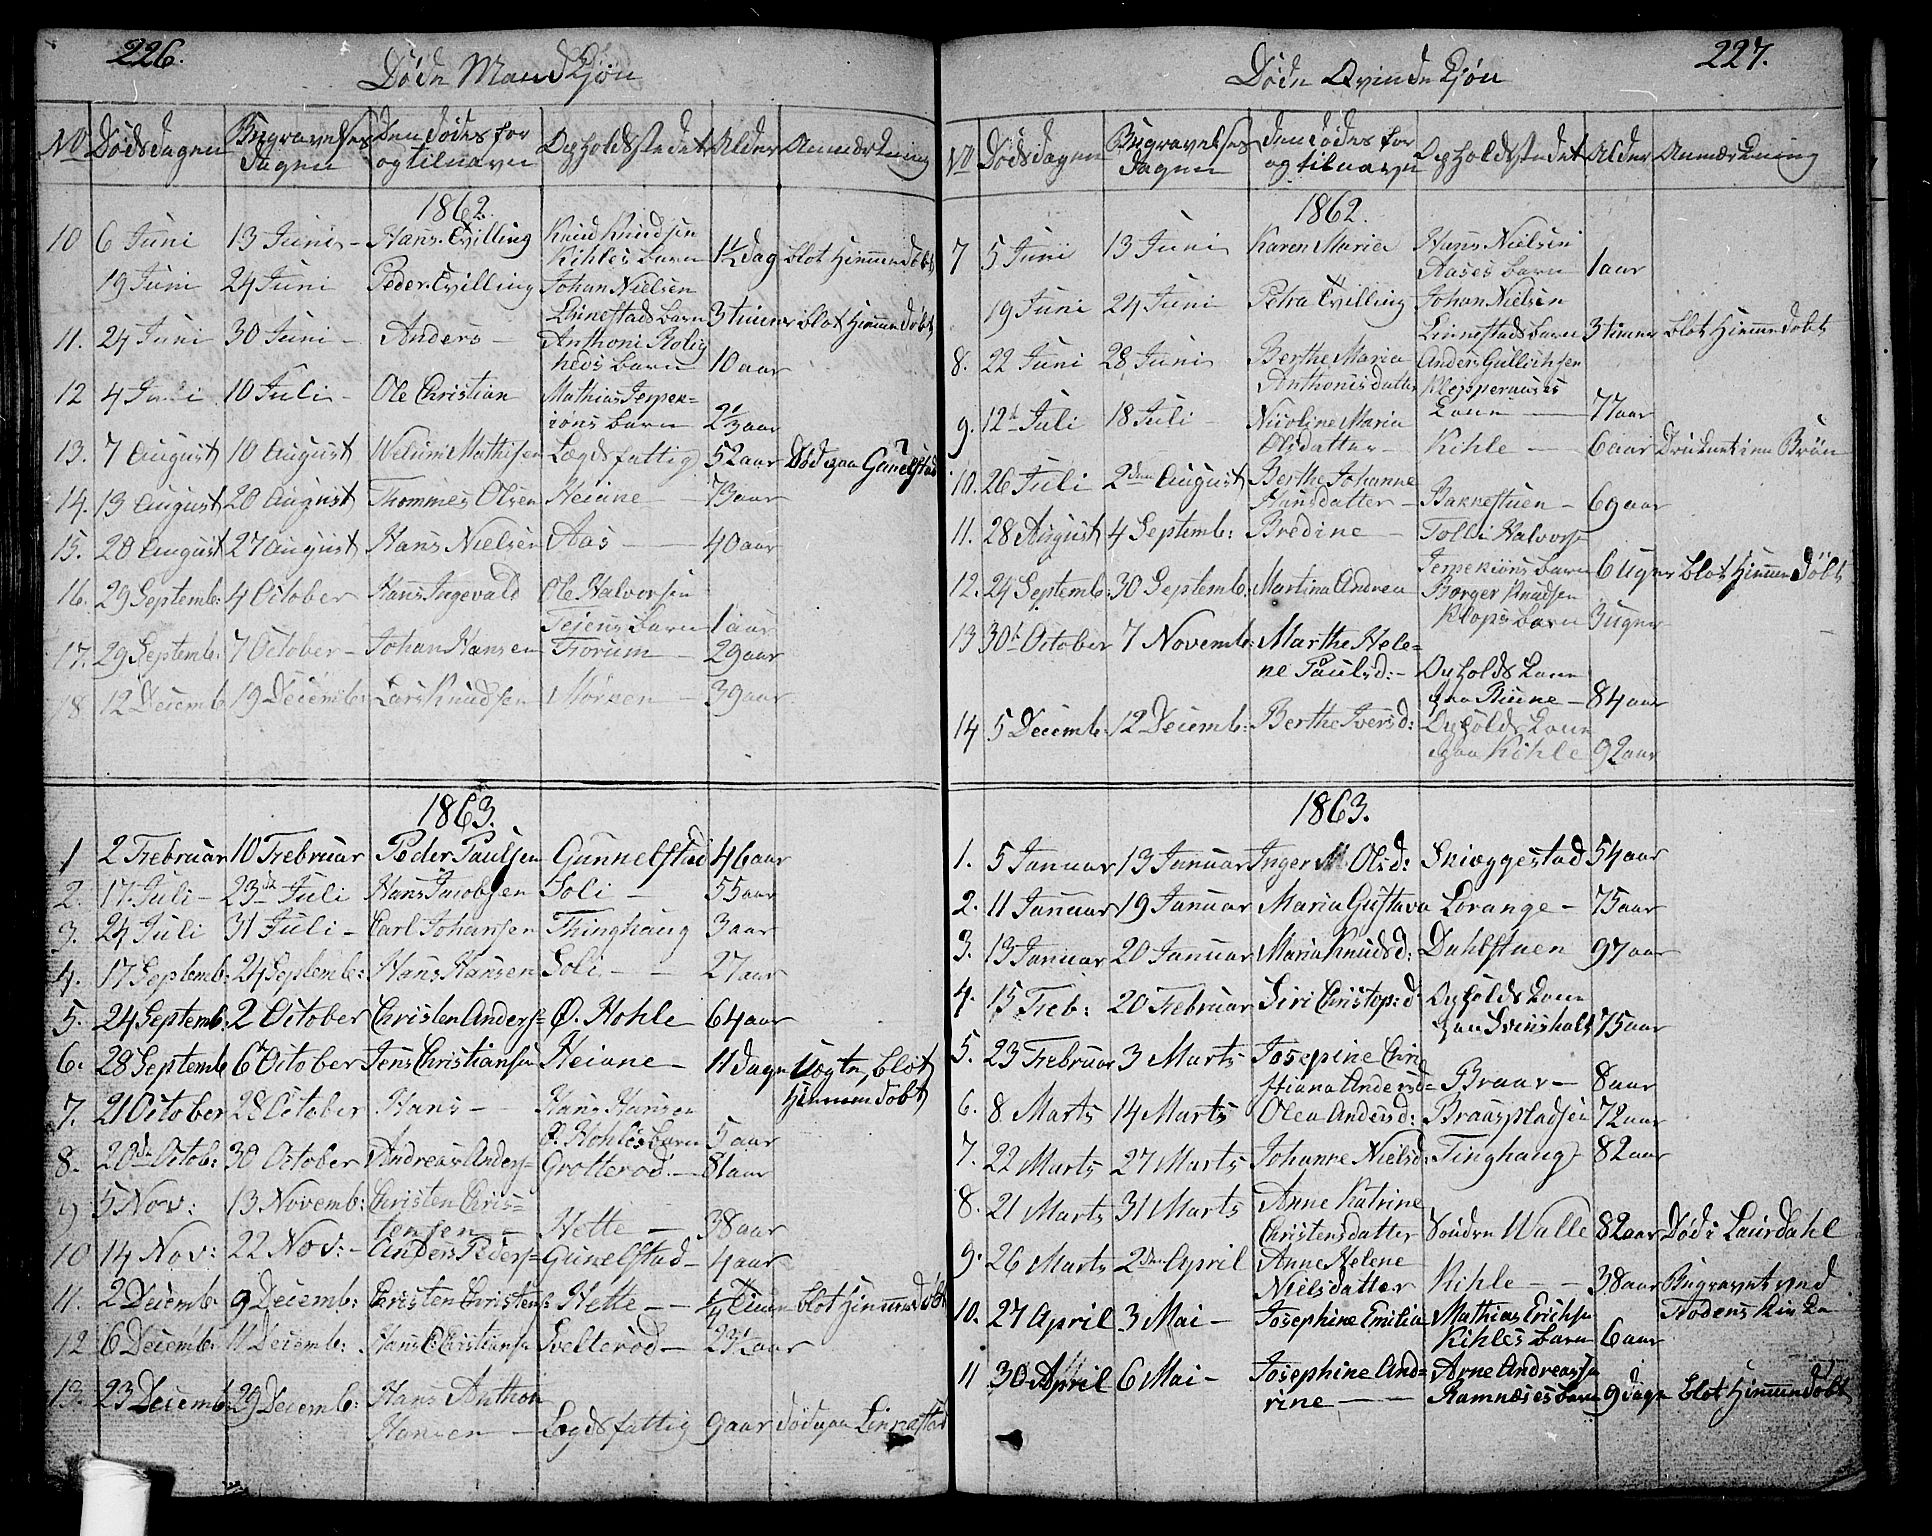 226.
Døde Mandkjøn
No Dødsdagen Begravelses Dagen den dødes for og tilnavn Opholdstedet Alder Anmærkning
1862.
10 6 Juni 13 Juni - Hans Tvilling Knud Knudsen
Kihles barn 1½ dag blot hjemmedøbt
19 Juni 24 Juni Peder Tvilling Johan Nielsen
Linnestads barn 3 timer blot hjemmedøbt
11. 24 Juni 30 Juni - Anders - Anthoni Rolig
heds barn 10 aar
12 4 Juli 10 Juli - Ole Christian Mathias Jerpek-
iøns barn 2⅓ aar
13. 7 August 10 August Mathisen Lægdsfattig 52 aar Død paa Gunelstad
14. 13 August 20 August Thommes Olsen Heiane - 73 aar
15. 20 August 27 August Hans Nielsen Aas - 40 aar
16. 29 Septemb: 4 October Hans Ingevald Ole Halvorsen
Teiens barn 1 aar
17. 29 Septemb: 7 October - Johan Hansen Frorum - 29 aar
18. 12 Decemb 19 Decemb: Lars Knudsen Mørken - 39 aar
1863.
1 2 Februar 10 Februar Peder Paulsen Gunnelstad 46 aar
2. 17 Juli - 23de Juli Hans Jacobsen Soli - 55 aar
3. 24 Juli 31 Juli - Carl Johansen Thinghaug 3 aar
4. 17 Septemb: 24 Septemb: Hans Hansen Soli - - 27 aar
5. 24 Septemb: 2 October Christen Anders= Ø. Hohle 64 aar
6. 28 Septemb 6 October Jens Christiansen Heiane - 11 dage Uægte, blot
hjemmedøbt
7. 21 October 28 October Hans - Hans Hansen
Ø. Hohles barn 5 aar
8. 20de Octob: 30 October Andreas Anders= Grotterød - 81 aar
9 5 Nov: 13 Novemb: Christen Chris-
tensen - Hette - 38 aar
10 14 Nov: 22 Nov: - Anders Peders= Gunelstad - 4 aar
11. 2 Decemb 9 Decemb: Christen Christens: Hette - ¼ Time blot hjemmedøbt
12 6 Decemb: 11 Decemb: Hans C Christiansen Svelterød - 23½ aar
13. 23 Decemb 29 Decemb: Hans Anthon
Hansen - Lægdsfattig 9 aar død paa Linnestad
227.
Døde Qvindekjøn
No Dødsdagen Begravelses Dagen den dødes for og tilnavn Opholdstedet Alder Anmærkning
1862.
7 5 Juni 13 Juni Karen Maria Hans Nielsen
Aases barn 1 aar
19 Juni 24 Juni Petra Tvilling Johan Nielsen
Linnestads barn 3 timer blot hjemmedøbt
8. 22 Juni 28 Juni Berthe Maria Anders Gullichsen
Anthonisdatter Klopperaases
Kone - 77 aar
9. 12te Juli 18 Juli - Nicoline Maria
Olsdatter - Kihle - 6 aar Druknet i en Brøn
10. 26 Juli 2den August Berthe Johanne
Hansdatter - Bakkestuen - 69 aar
11. 28 August 4 Septemb: Bredine - Tolli Halvorsen
Jerpekiøns barn 6 uger blot hjemmedøbt
12. 24 Septemb 30 Septemb. Martina Andrea Borger Knudsen
Klops barn 3 uger
13 30te October 7 Novemb: Marthe Hele-
ne Paulsd: - Opholds Kone
paa - 84 aar
14 5 Decemb. 12 Decemb: Berthe Iversd: Opholds Kone
paa Kihle 92 aar
1863.
1. 5 Januar 13 Januar Inger M Olsd: Skieggestad 54 aar
2. 11 Januar 19 Januar Maria Gustava Lorange - 75 aar
3. 13 Januar 20 Januar Maria Knudsd: Dahlstuen 97 aar
4. 15 Feb: 20 Februar Siri Christop:d Opholds Kone
paa Svinsholt 75 aar
5. 23 Februar 3 Marts Josephine Chri
stiana Andersd= Braar - 8 aar
6. 8 Marts 14 Marts Olea Andersd: Braarspladsen 72 aar
7. 22 Marts 27 Marts Johanne Nielsd: Tinghaug 82 aar
8. 21 Marts 31 Marts Anne Katrine
Christensdatter Søndre Walle 82 aar Død i Laurdahl
9. 26 Marts 2den April Anne Helene
Nielsdatter Kihle - - 38 aar Begravet ved
Fødens Kirke
10. 27 April 3 Mai - Josephine Emilia Mathias Erichsen
Kihles barn 6 aar
11 30 April 6 Mai - Josephine And= Arne Andreassen
rine - Ramnæses barn 9 dage blot hjemmedøbt